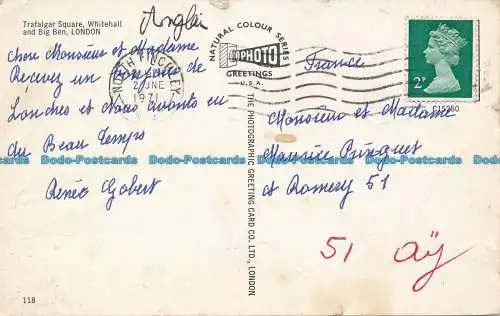 Trafalgar Square, Whitehall
and Big Ben, LONDON
Chers Monsieur et Madame
Recevez un bonjour de
Londres et nous avons eu
du Beau Temps
Renée Gobert
2 JNE
1971
NATURAL COLOUR SERIES
PHOTO
GREETINGS
U.S.A.
THE PHOTOGRAPHIC GREETING CARD CO. LTD., LONDON
2P
C15250
France
Monsieur et Madame
Maurice
et Romery 51
51 aÿ
118
Dodo-Postcards Dodo-Postcards Dodo-Postcards Dodo-Postcards